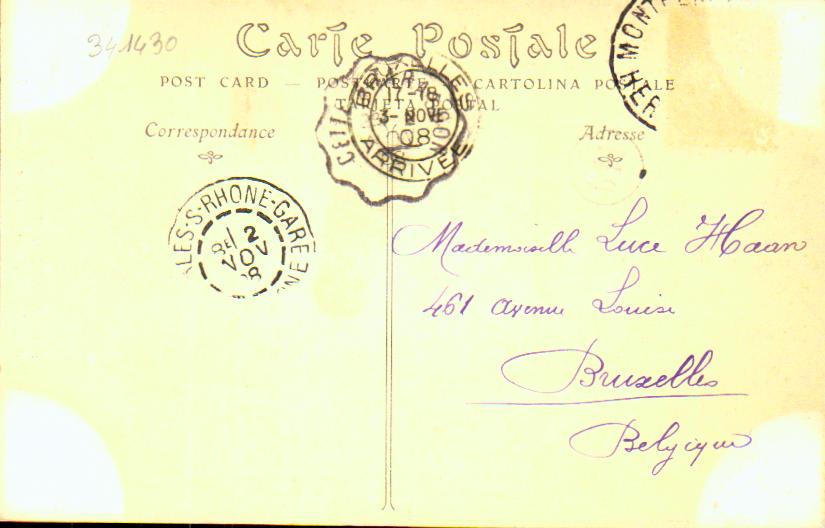 341430
Carte Postale
POST CARD — POSTKARTE — CARTOLINA POSTALE
TARJETA POSTAL
Correspondance
Adresse
BRUXELLES
17-18
3- NOV
1908
ARRIVÉE
CETTE
MONTPE
HER
ALES-S-RHONE-GARE
2
NOV
08
NE
Mademoiselle Luce Haan
461 avenue Louise
Bruxelles
Belgique